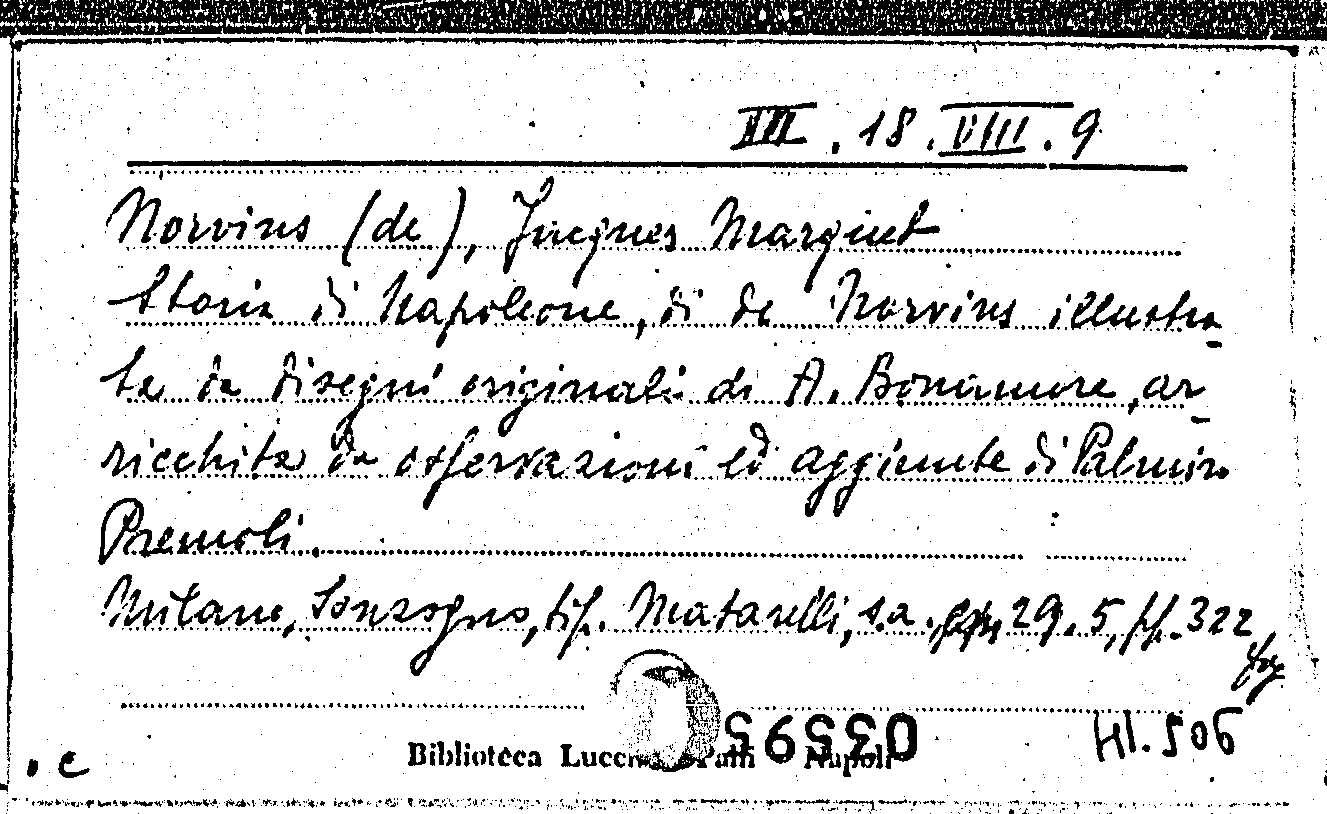 III.18.VIII.9
Norvins (de), Jacques Marquet
Storia di Napoleone, di de Norvins illustra-
ta da disegni originali di A. Bonamore, ar-
ricchita da osservazioni ed aggiunte di Palmiro
Premoli.
Milano, Sonzogno, tip. Matarelli, s.a., 29.5, pp. 322
fig
Biblioteca Lucchesi Palli Napoli
HI.506
. c